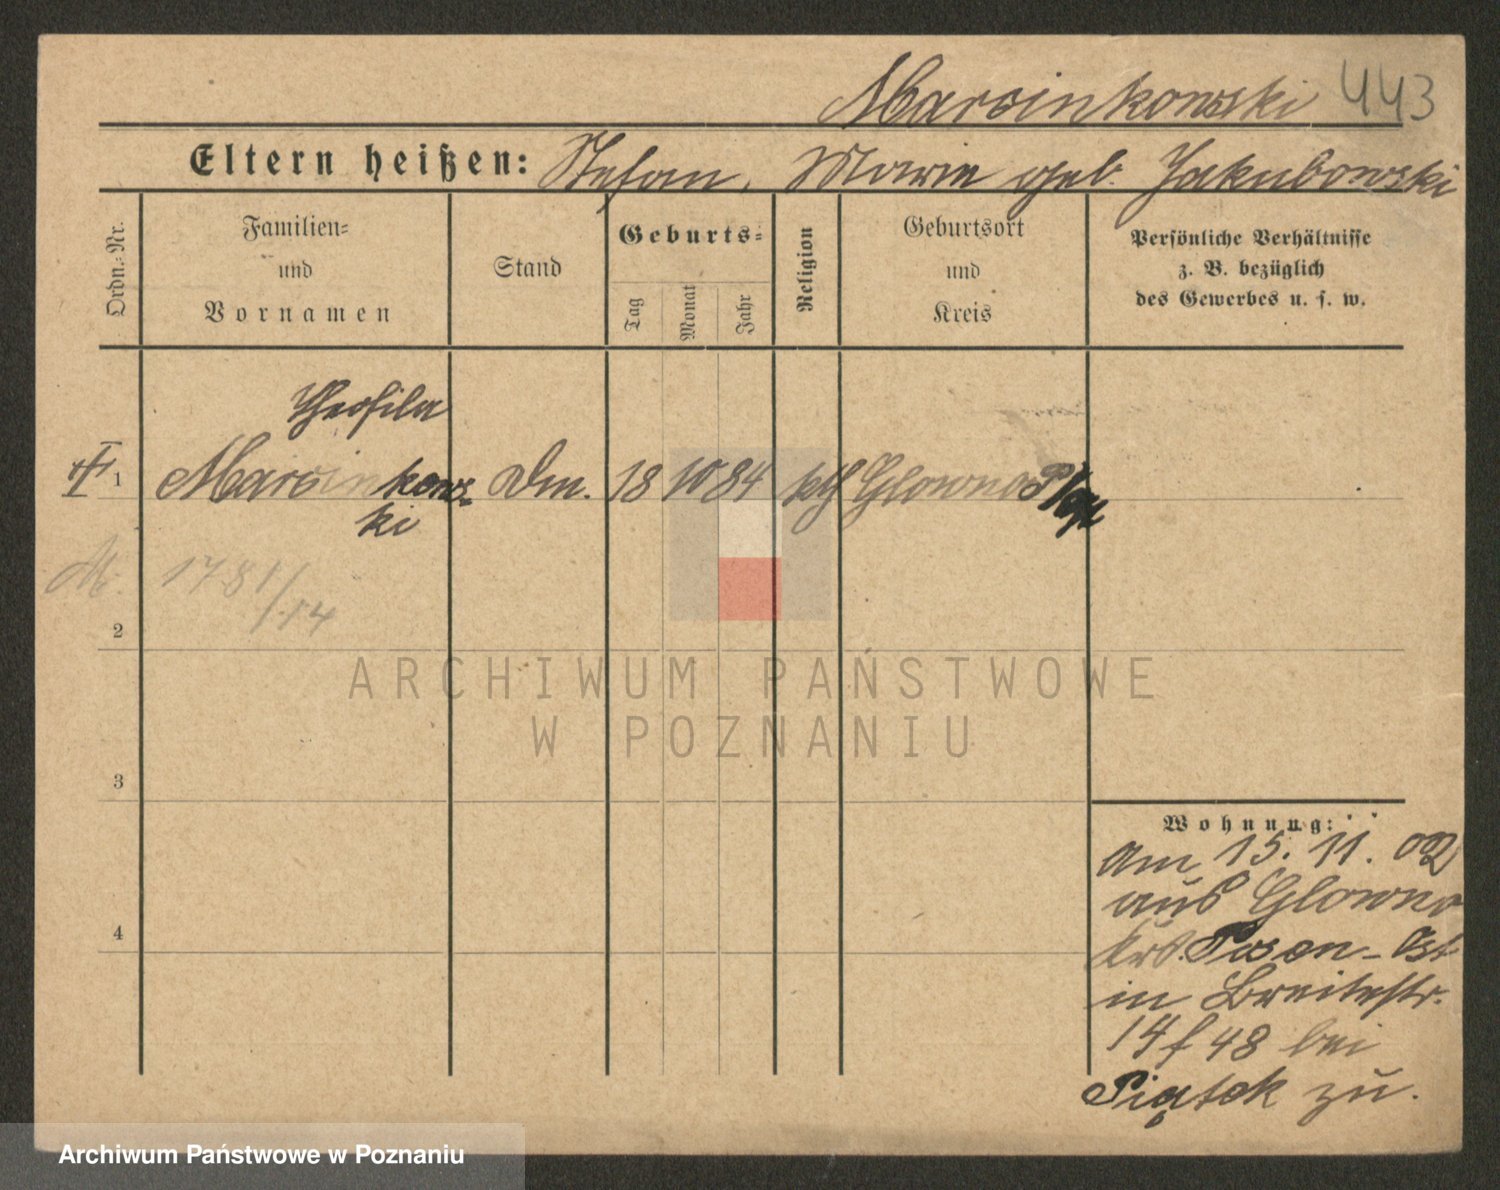 Marcinkowski 443
Eltern heißen: Stefan, Marie geb. Jakubowski
Ordn.-Nr.
Familien- und Vornamen
Stand
Geburts-
Tag
Monat
Jahr
Religion
Geburtsort und Kreis
Persönliche Verhältnisse
z. B. bezüglich
des Gewerbes u. s. w.
Theofila
1 Marcinkows- Dm. 18 10 84 kth Glowno
ki
M. 1781/14
2
3
4
Wohnung:
am 15. 11. 02
aus Glowno
Krs. Posen-Ost
in Breitestr.
14 f 48 bei
Piątek zu.
ARCHIWUM PAŃSTWOWE
W POZNANIU
Archiwum Państwowe w Poznaniu